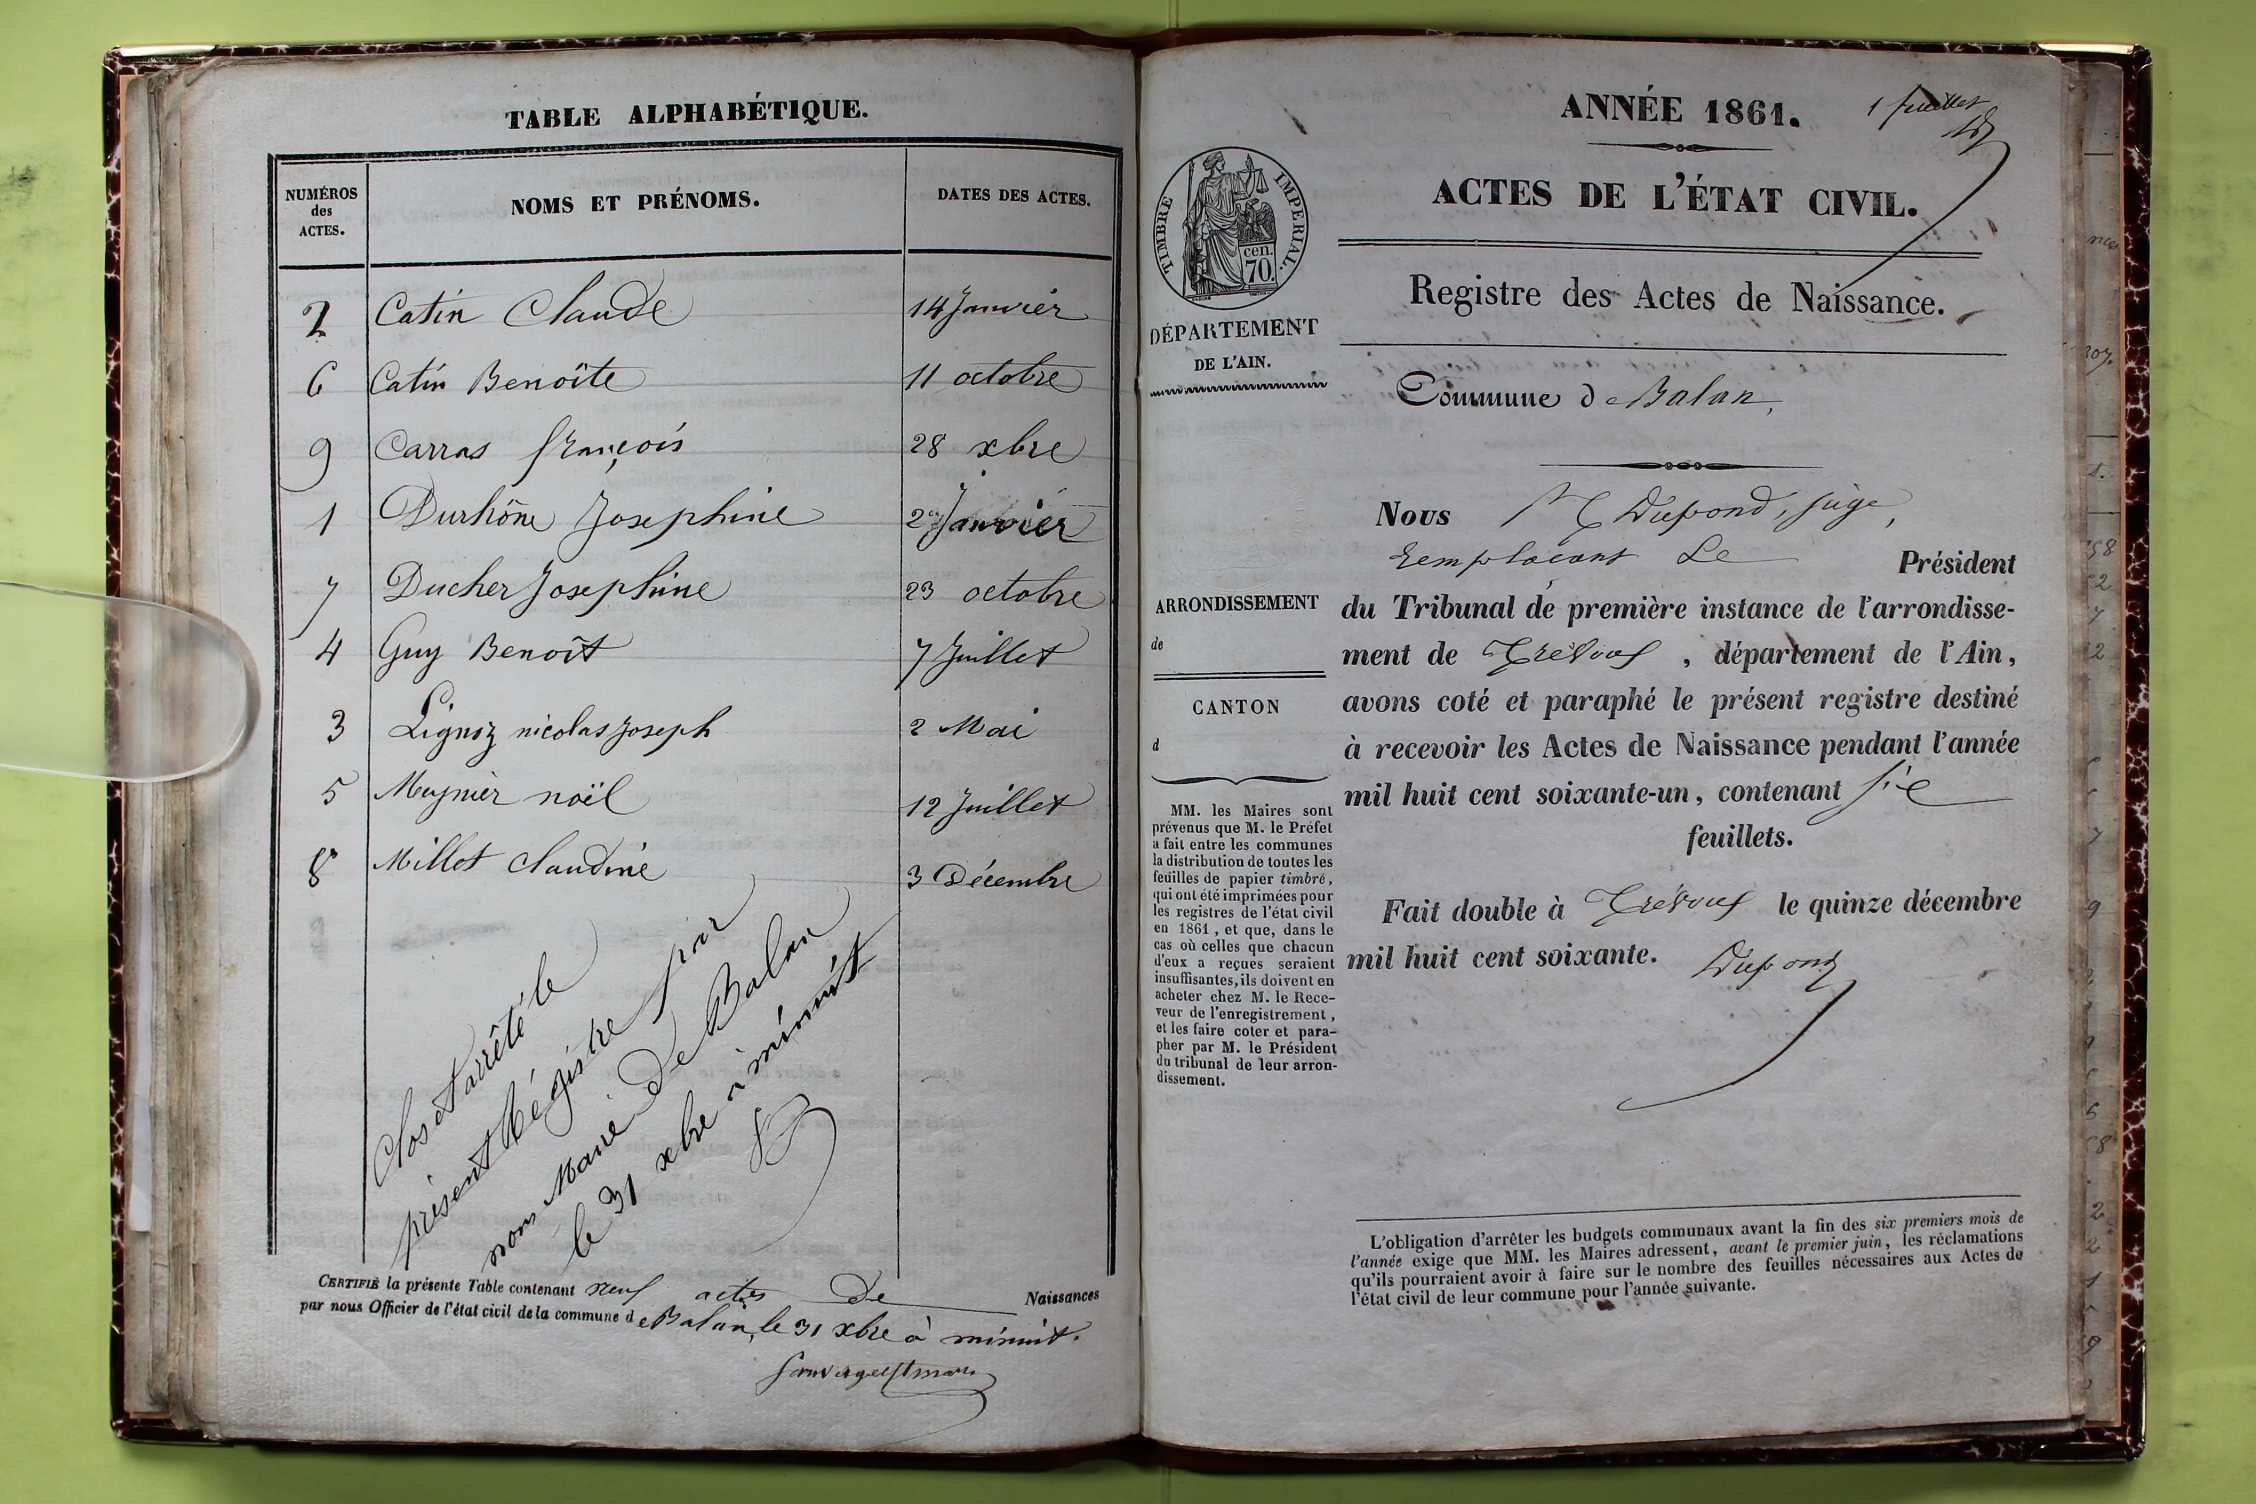 TABLE ALPHABÉTIQUE.
NUMÉROS
des
ACTES.
NOMS ET PRÉNOMS.
DATES DES ACTES.
2 Catin Claude 14 Janvier
6 Catin Benoîte 11 octobre
9 Carras françois 28 xbre
1 Durhône Josephine 2 Janvier
7 Ducher Josephine 23 octobre
4 Guy Benoît 7 Juillet
3 Lignoz nicolas Joseph 2 Mai
5 Meynier noël 12 Juillet
8 Millet Claudine 3 Décembre
Clos et arrêté le
présent Régistre par
nous Maire de Balan
le 31 xbre à minuit
CERTIFIÉ la présente Table contenant neuf actes de Naissances
par nous Officier de l'état civil de la commune de Balan, le 31 xbre à minuit.
ANNÉE 1861.
1 feuillet
ACTES DE L'ÉTAT CIVIL.
TIMBRE IMPERIAL.
cen.
70.
Registre des Actes de Naissance.
DÉPARTEMENT
DE L'AIN.
Commune de Balan,
Nous Dupond, juge,
remplaçant Le Président
ARRONDISSEMENT
de
du Tribunal de première instance de l'arrondisse-
ment de Trévoux, département de l'Ain,
avons coté et paraphé le présent registre destiné
à recevoir les Actes de Naissance pendant l'année
mil huit cent soixante-un, contenant six
feuillets.
CANTON
d
MM. les Maires sont
prévenus que M. le Préfet
a fait entre les communes
la distribution de toutes les
feuilles de papier timbré,
qui ont été imprimées pour
les registres de l'état civil
en 1861, et que, dans le
cas où celles que chacun
d'eux a reçues seraient
insuffisantes, ils doivent en
acheter chez M. le Rece-
veur de l'enregistrement,
et les faire coter et para-
pher par M. le Président
du tribunal de leur arron-
dissement.
Fait double à Trévoux le quinze décembre
mil huit cent soixante.
Dupond
L'obligation d'arrêter les budgets communaux avant la fin des six premiers mois de
l'année exige que MM. les Maires adressent, avant le premier juin, les réclamations
qu'ils pourraient avoir à faire sur le nombre des feuilles nécessaires aux Actes de
l'état civil de leur commune pour l'année suivante.